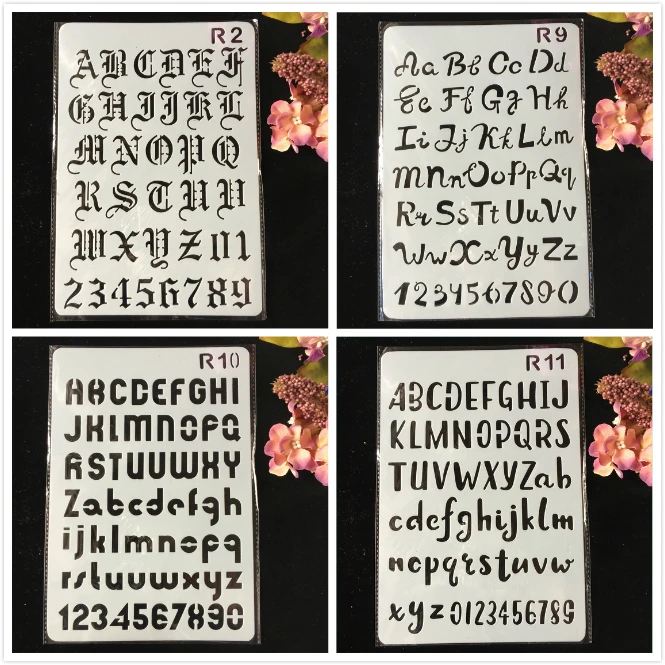 R2
ABCDEF
GHIJKL
MNOPQ
RSTUV
WXYZ01
23456789
R9
AaBbCcDd
EeFfGgHh
IiJjKkLlm
MNnOoPpQq
RrSsTtUuVv
WwXxYyZz
1234567890
R10
ABCDEFGHI
JKLMNOPQ
RSTUVWXY
Zabcdefgh
ijklmnopq
rstuvwxyz
1234567890
R11
ABCDEFGHIJ
KLMNOPQRS
TUVWXYZab
cdefghijklm
nopqrstuvw
xyz0123456789